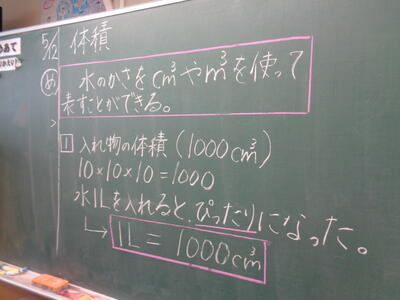 5/12 体積
め 水のかさをcm³やm³を使って
表すことができる。
1 入れ物の体積(1000cm³)
10×10×10=1000
水1Lを入れると、ぴったりになった。
→1L=1000cm³